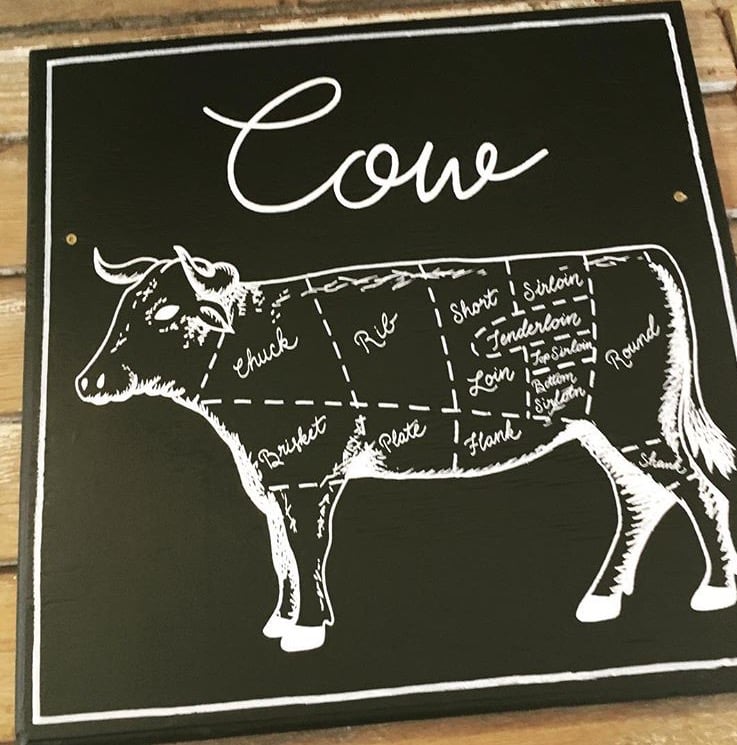 Cow
Chuck
Rib
Short
Loin
Sirloin
Tenderloin
Top Sirloin
Bottom
Sirloin
Round
Brisket
Plate
Flank
Shank